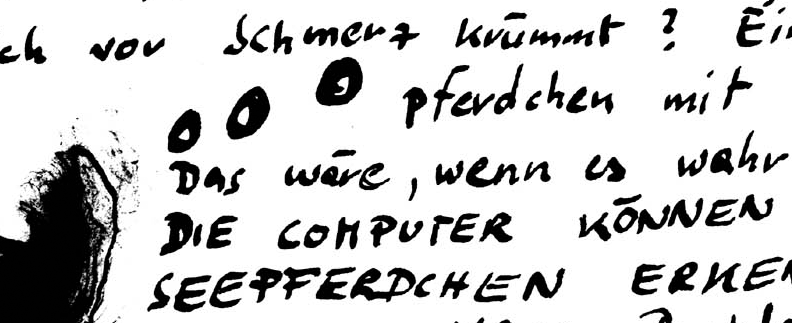 ch vor Schmerz krümmt ? Ei
pferdchen mit
Das wäre, wenn es wahr
DIE COMPUTER KÖNNEN
SEEPFERDCHEN ERKEN